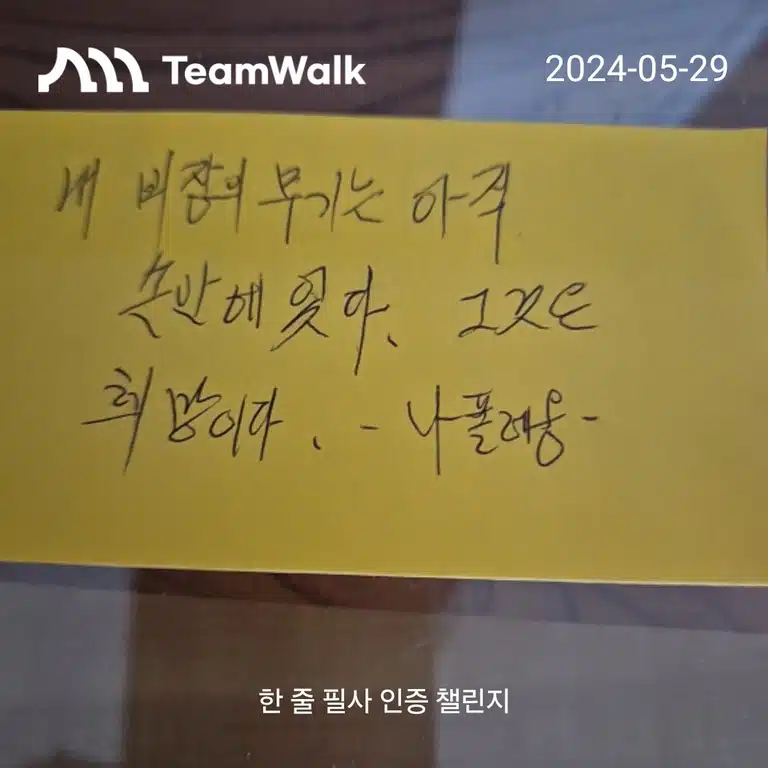 TeamWalk
2024-05-29
내 비장의 무기는 아직
손반에 있다. 그것은
희망이다. - 나폴레옹-
한 줄 필사 인증 챌린지